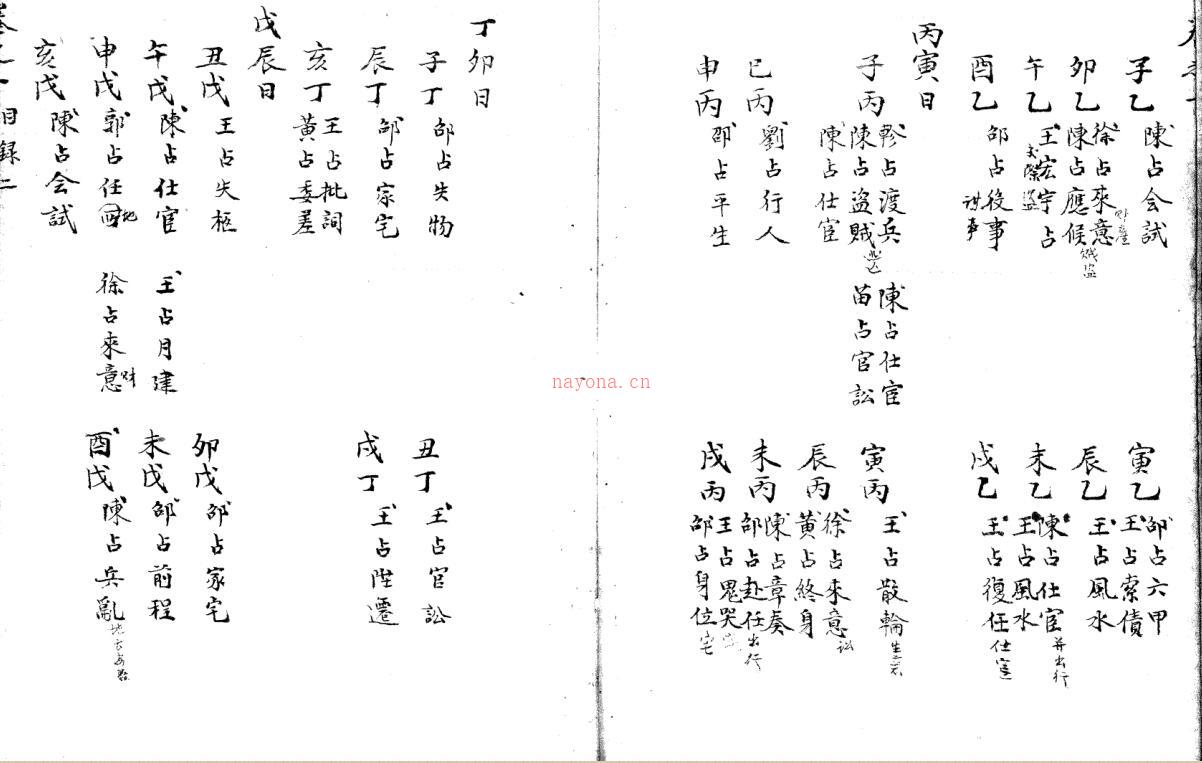 子乙 陳占会試
寅乙 邵占六甲
王占索債
卯乙 徐占來意
陳占應候 賊盜
辰乙 王占風水
午乙 王宏宇占
失際盜
未乙 陳占仕宦 并出行
王占風水
酉乙 邵占役事
戌乙 王占復任 仕宦
丙寅日
子丙 占渡兵 陳占仕宦
陳占盜賊 苗占官訟
陳占仕宦
寅丙 王占散輪
辰丙 徐占來意 訟
黃占終身
巳丙 劉占行人
未丙 陳占章奏
邵占赴任 出行
申丙 邵占平生
戌丙 王占鬼哭
邵占身位 宅
丁卯日
子丁 邵占失物
丑丁 王占官訟
辰丁 邵占家宅
戌丁 王占陞遷
亥丁 王占批詞
黃占委差
戊辰日
丑戊 王占失柩
卯戊 邵占家宅
午戊 陳占仕宦 王占月建
未戊 邵占前程
申戊 郭占任 徐占來意 财
酉戊 陳占兵亂
亥戊 陳占会試
目録二
nayona.cn